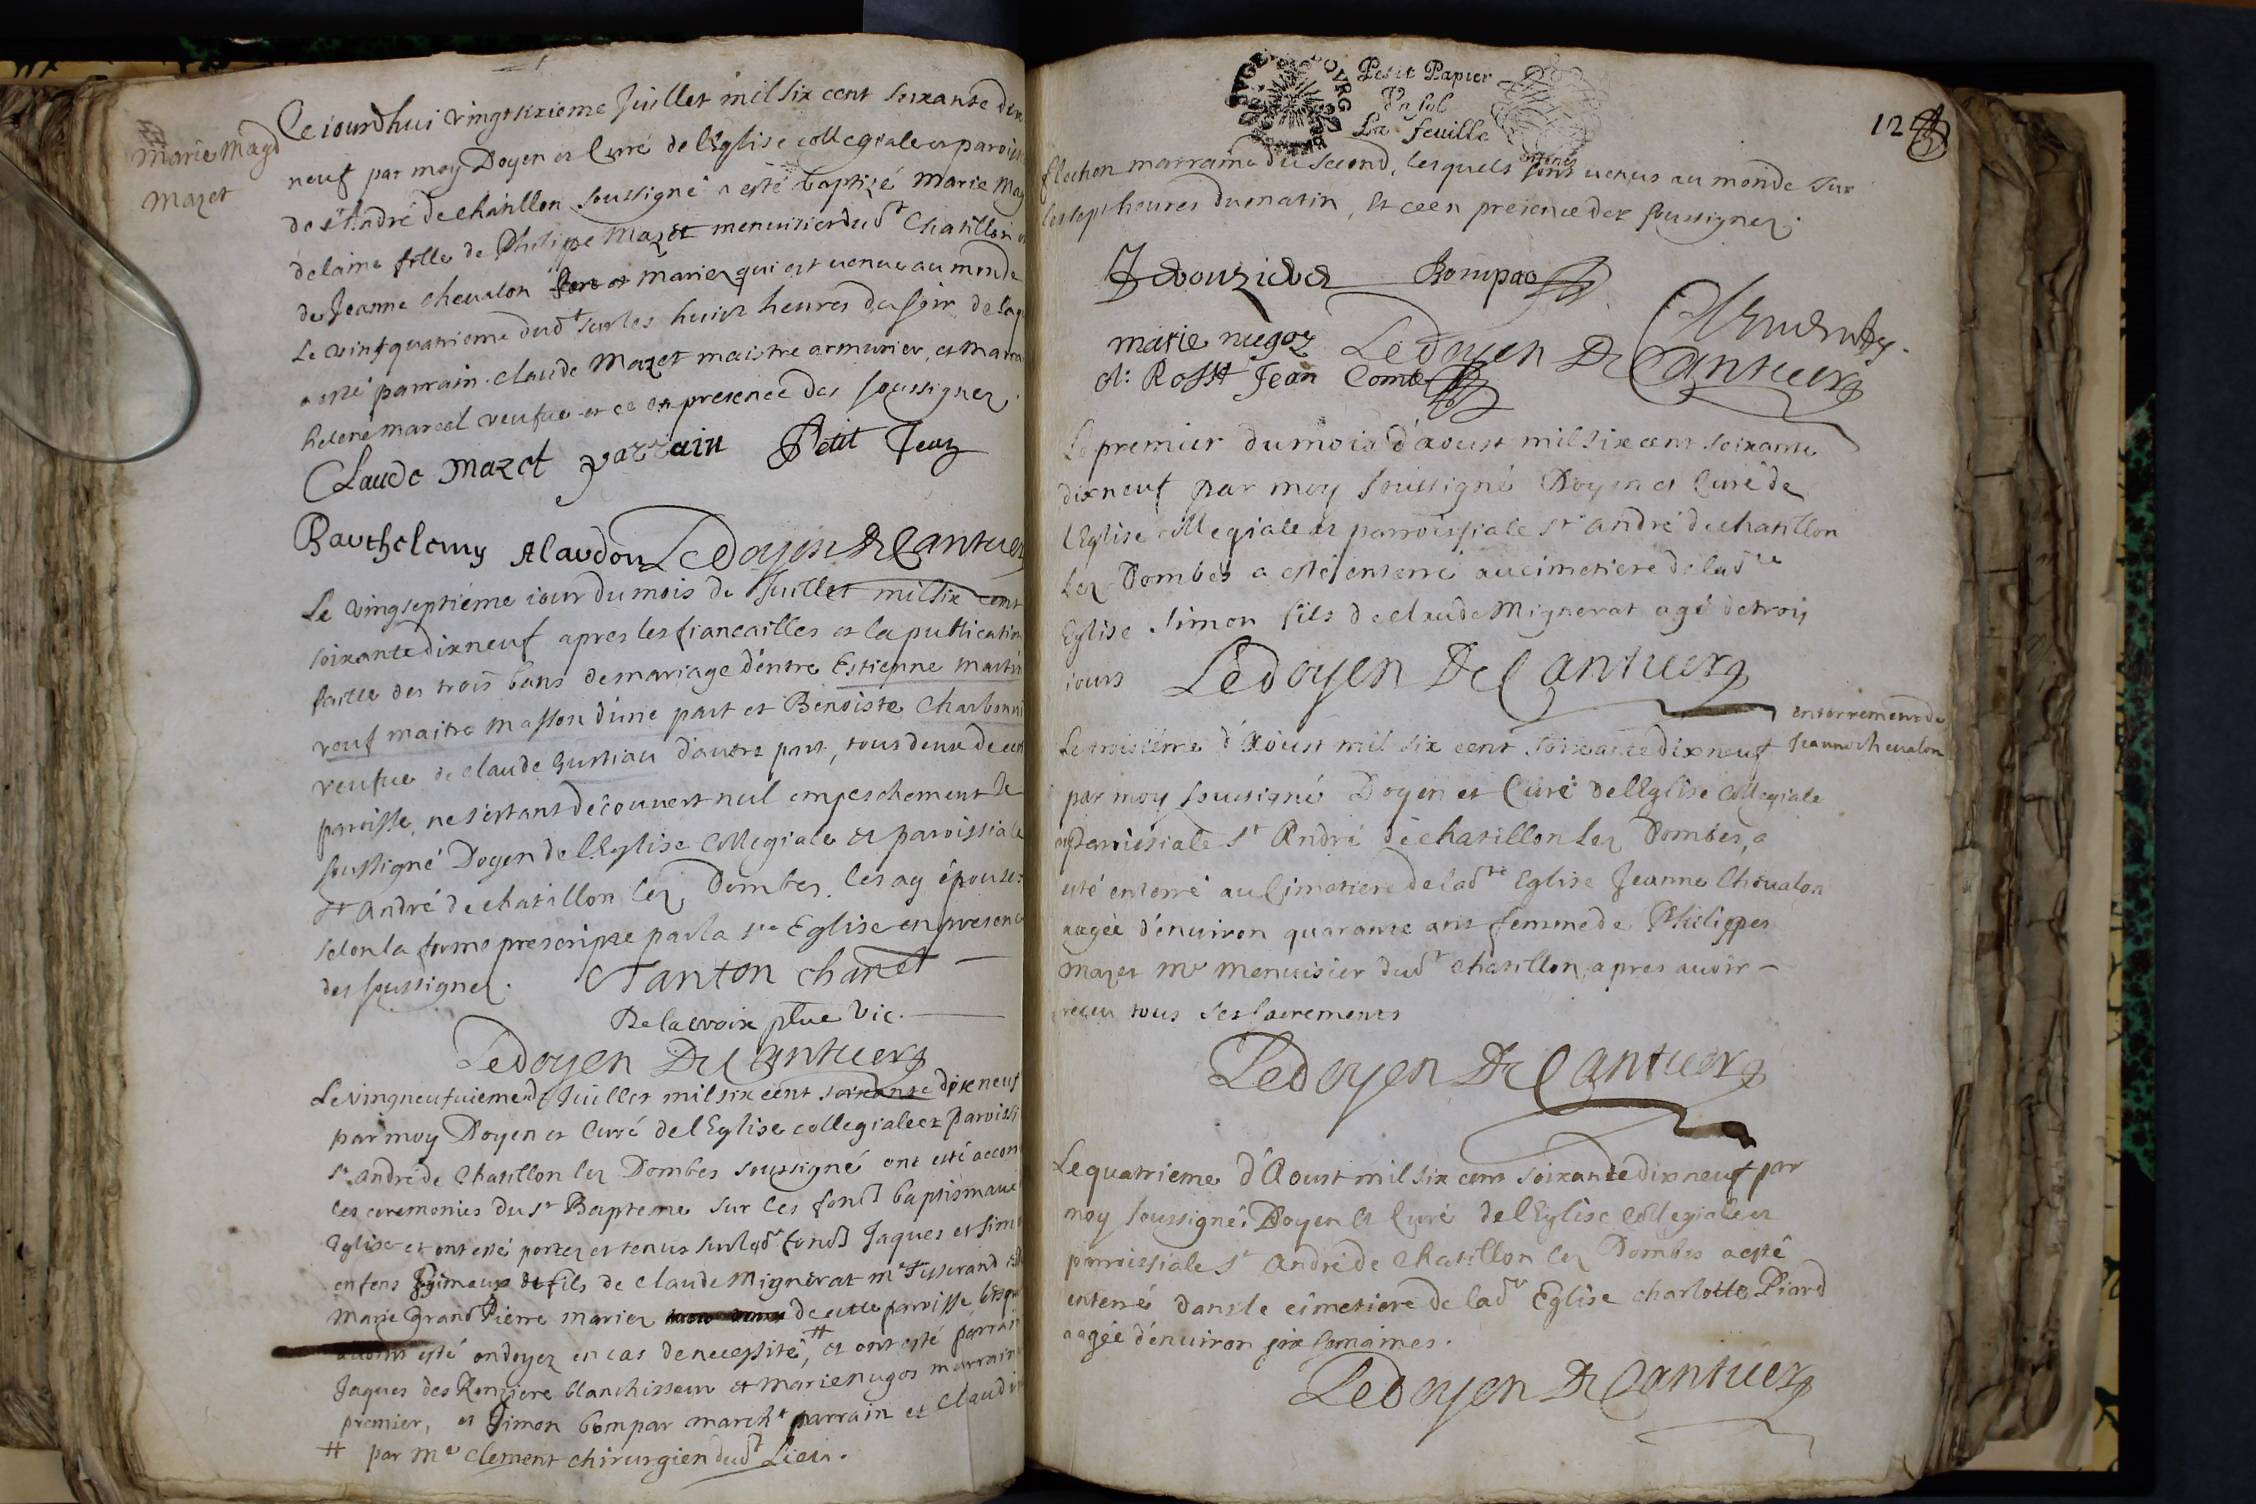 Marie Magd
Mazet
Ce iourdhui vingtsixieme Juillet mil six cent soixante dix
neuf par moy Doyen et Curé de l'Eglise collegiale et paroiss
de st André de chatillon soussigné a esté baptizé Marie Mag
delaine fille de Philippe Mazet menuisier dudt Chatillon et
de Jeanne chevalon mariez qui est venue au monde
le vintquatrieme dudt sur les huict heures du soir, de laq
a esté parrain claude Mazet maistre armurier, et marra
helene marcel veufue et ce en presence des soussignez.
Claude Mazet parrain Petit Jean
Barthelemy Alaudon Ledoyen De Cantuerg
Le vingseptiéme iour du mois de Juillet mil six cent
soixante dixneuf apres les fiancailles et la publication
faitte des trois bans de mariage d'entre Estienne martin
veuf maitre masson d'une part et Benoiste Charbonni
veufue de claude Gustian d'autre part, tous deux de cett
paroisse, ne s'estant découvert nul empeschement Je
soussigné Doyen de l'Eglise Collegiale et paroissiale
st André de chatillon lez Dombes. les ay épousez
selon la forme prescripte par la ste Eglise en presence
des soussignez. Tanton chanet
Delacroix ptre Vic.
Ledoyen De Cantuerg
Le vingneufuieme de Juillet mil six cent soixante dixneuf
par moy Doyen et Curé de l'Eglise collegiale et paroissi
st. André de Chatillon lez Dombes soussigné ont esté accom
les ceremonies du st Bapteme sur les fonds baptismaux
Eglise et ont esté portez et tenus sur lesdt fonds Jaques et Simo
enfens Jumeaux fils de claude Mignerat me Tisserand et de
Marie Grand Pierre mariez de cette paroisse, lesqu
auoint esté ondoyez en cas de necessité, # et ont esté parrain
Jaques des Ronziere blanchisseur et marie nugos marraine
premier, et Simon bompar marcht parrain et Claudine
# par me clement chirurgien dudt Lieu.
BOVRG
Petit Papier
Un sol
La feuille
12
flechon marraine du second, lesquels sont venus au monde sur
les sept heures du matin, et ce en presence des soussignez.
Bompar
marie nugoz Ledoyen De Cantuerg
Rosst Jean Comte
Le premier du mois d'aoust mil six cent soixante
dixneuf par moy soussigné Doyen et Curé de
l'Eglise collegiale et parroissiale st andré de chatillon
Lez Dombes a esté enterré au cimetiere de ladte
Eglise Simon fils de claude Mignerat agé de trois
iours Ledoyen De Cantuerg
enterrement de
Jeanne chevalon
Le troisiéme d'Aoust mil six cent soixante dixneuf
par moy soussigné Doyen et Curé de l'Eglise Collegiale
et Paroissiale st André de chatillon lez Dombes, a
esté enterré au Cimetiere de ladte Eglise Jeanne Chevalon
aagée d'environ quarante ans femme de Philippes
mazet me menuisier dudt chatillon, apres avoir
receu tous ses sacrements
Ledoyen De Cantuerg
Le quatrieme d'Aoust mil six cent soixante dixneuf par
moy soussigné Doyen et Curé de l'Eglise collegiale et
parroissiale st André de Chatillon lez Dombes a esté
enterré dans le cimetiere de ladte Eglise charlotte Piard
aagée d'environ six semaines.
Ledoyen De Cantuerg